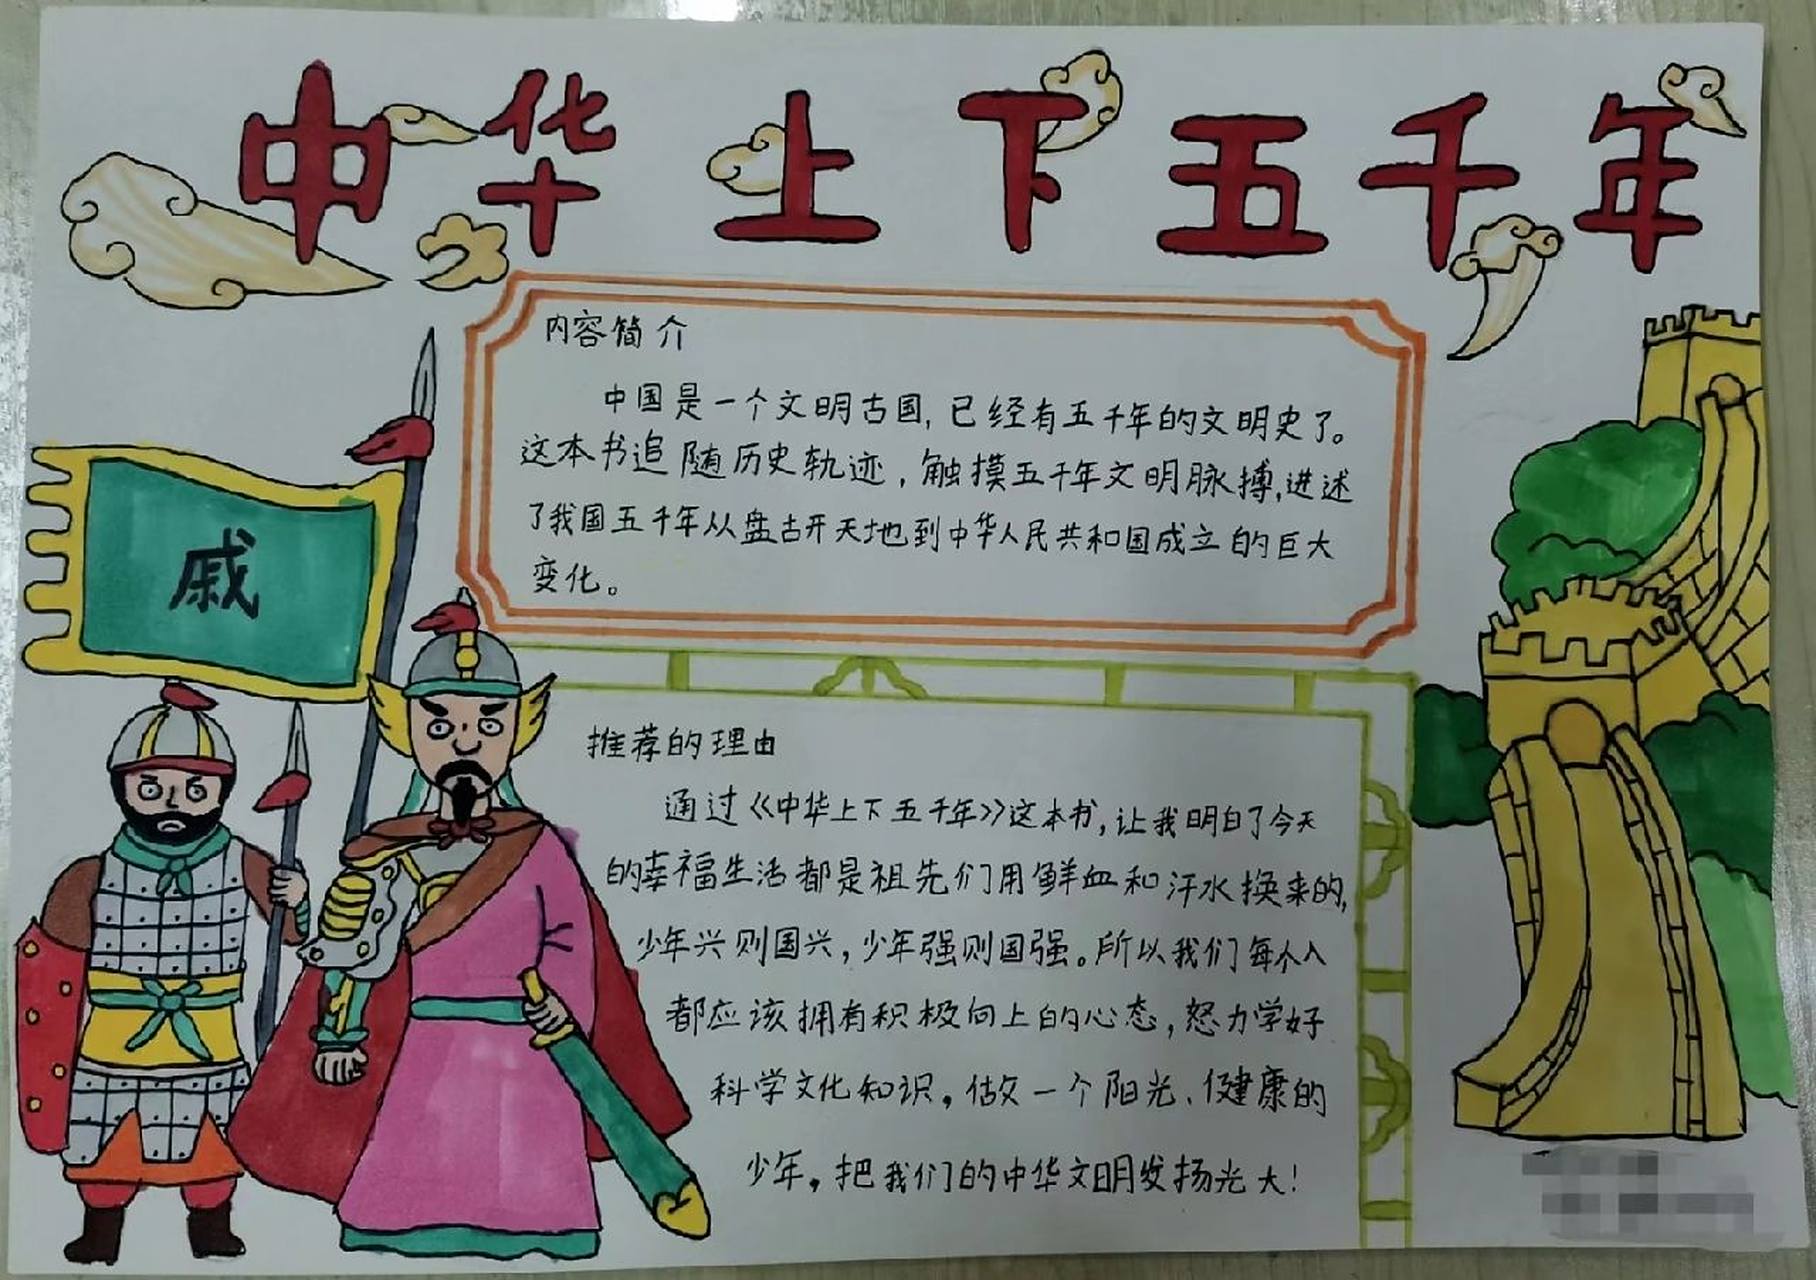 中华上下五千年
内容简介
中国是一个文明古国,已经有五千年的文明史了。
这本书追随历史轨迹,触摸五千年文明脉搏,进述
了我国五千年从盘古开天地到中华人民共和国成立的巨大
变化。
戚
推荐的理由
通过《中华上下五千年》这本书,让我明白了今天
的幸福生活都是祖先们用鲜血和汗水换来的,
少年兴则国兴,少年强则国强。所以我们每个人
都应该拥有积极向上的心态,努力学好
科学文化知识。做一个阳光、健康的
少年。把我们的中华文明发扬光大!